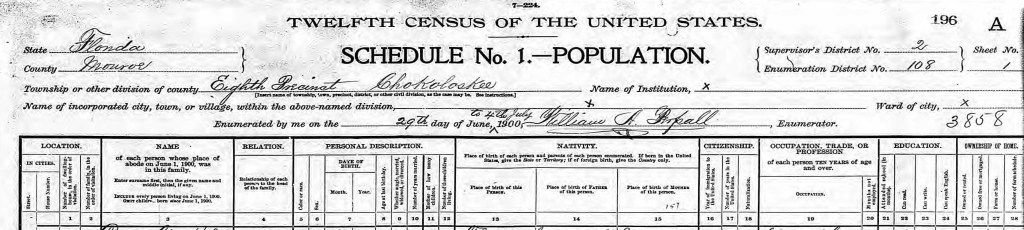 7—224.
TWELFTH CENSUS OF THE UNITED STATES.
196 A
State Florida
County Monroe
SCHEDULE No. 1.—POPULATION.
Supervisor's District No. 2
Enumeration District No. 108
Sheet No. 1
Township or other division of county Eighth Precinct Chokoloskee Name of Institution, x
[Insert name of township, town, precinct, district, or other civil division, as the case may be. See instructions.]
Name of incorporated city, town, or village, within the above-named division, x Ward of city, x
Enumerated by me on the 29th day of June, to 4th July 1900, William Enumerator. 3858
LOCATION. NAME RELATION. PERSONAL DESCRIPTION. NATIVITY. CITIZENSHIP. OCCUPATION, TRADE, OR PROFESSION EDUCATION. OWNERSHIP OF HOME.
IN CITIES.
Street.
House number.
of each person whose place of abode on June 1, 1900, was in this family.
Enter surname first, then the given name and middle initial, if any.
INCLUDE every person living on June 1, 1900.
OMIT children born since June 1, 1900.
Relationship of each person to the head of the family.
Color or race.
Sex.
DATE OF BIRTH.
Month. Year.
Age at last birthday.
Place of birth of each person and parents of each person enumerated. If born in the United States, give the State or Territory; if of foreign birth, give the Country only.
Place of birth of this PERSON.
Place of birth of FATHER of this person.
Place of birth of MOTHER of this person.
Year of immigration to the United States.
Number of years in the United States.
Naturalization.
of each person TEN YEARS of age and over.
OCCUPATION.
Months not employed.
Attended school (in months).
Can read.
Can write.
Can speak English.
Owned or rented.
Owned free or mortgaged.
Farm or house.
1 2 3 4 5 6 7 8 9 10 11 12 13 14 15 16 17 18 19 20 21 22 23 24 25 26 27 28